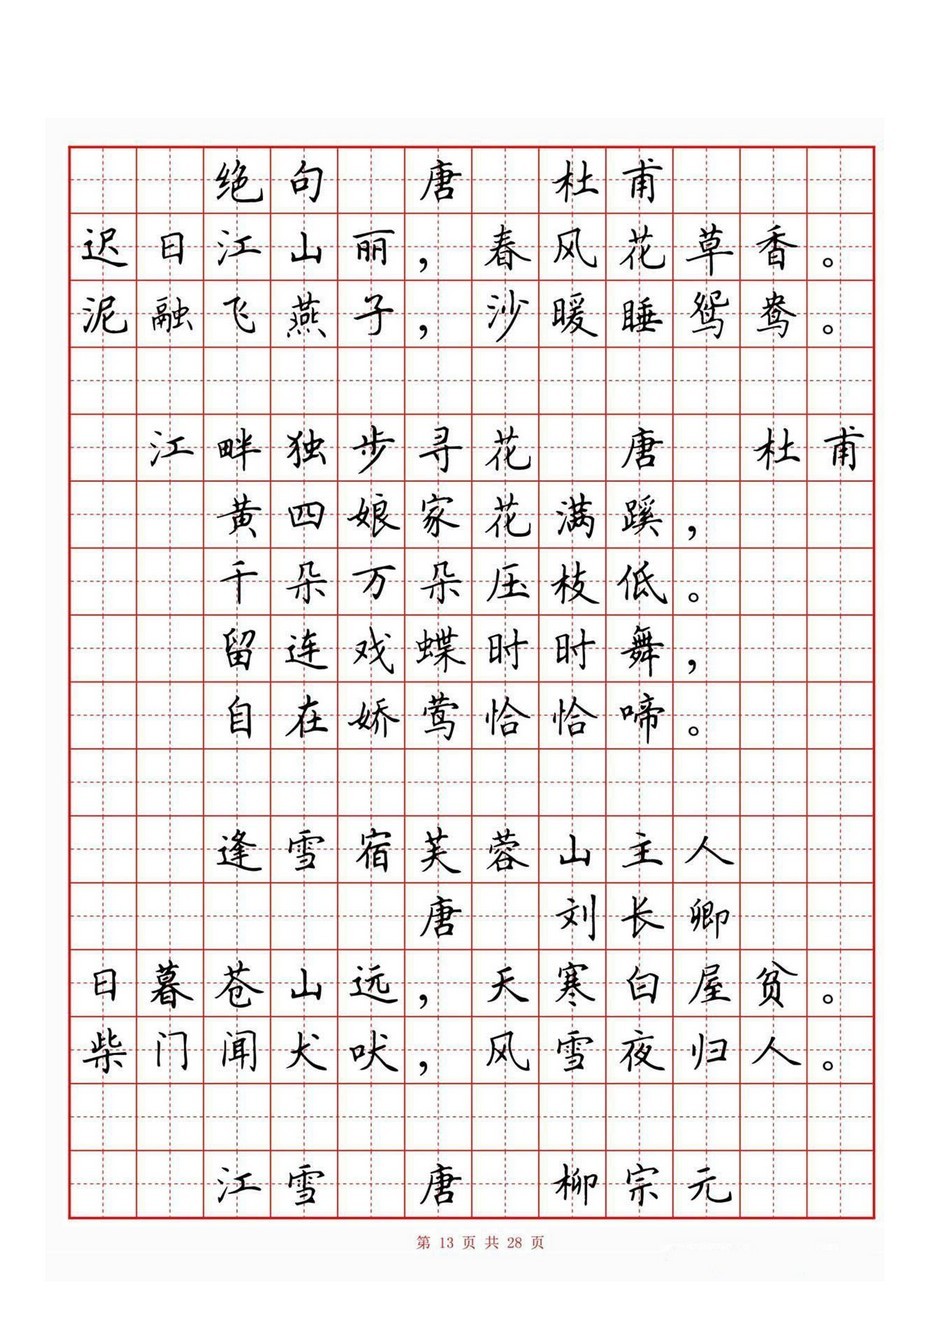 绝句 唐 杜甫
迟日江山丽，春风花草香。
泥融飞燕子，沙暖睡鸳鸯。
江畔独步寻花 唐 杜甫
黄四娘家花满蹊，
千朵万朵压枝低。
留连戏蝶时时舞，
自在娇莺恰恰啼。
逢雪宿芙蓉山主人
唐 刘长卿
日暮苍山远，天寒白屋贫。
柴门闻犬吠，风雪夜归人。
江雪 唐 柳宗元
第 13 页 共 28 页